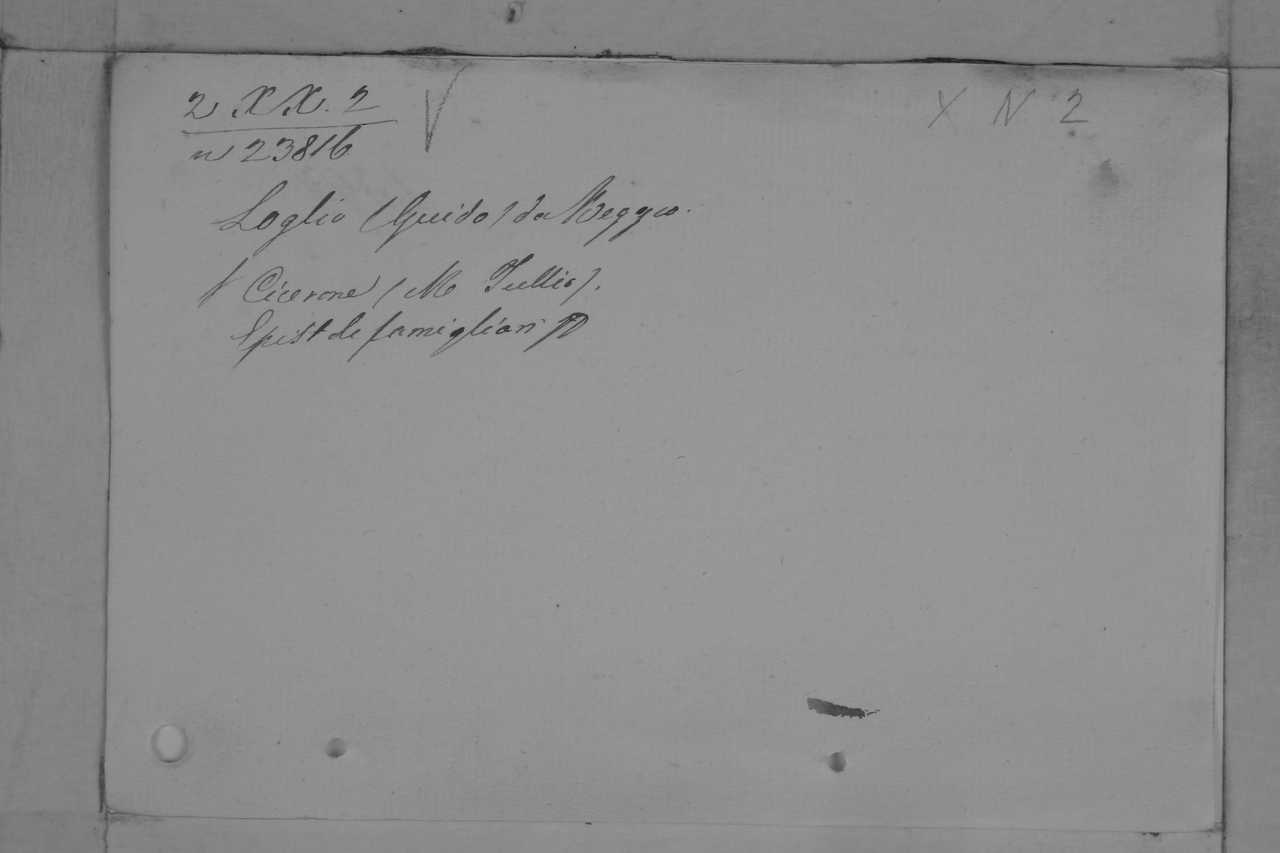 2 XX. 2
X N 2
n 23816
Loglio (Guido) da Reggio.
Cicerone (M Tullio).
Epist le famigliari